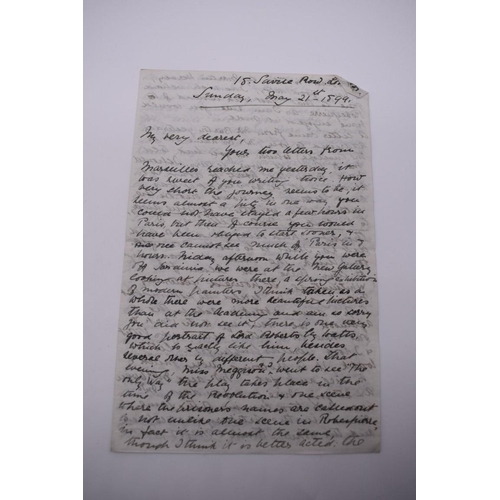 15. Savile Row. Lo
Sunday, May 21st 1899.
My very dearest,
Your two letters from
Marseilles reached me yesterday, it
was sweet of you writing those. How
very short the journey seems to be, it
seems almost a pity in one way you
could not have stayed a few hours in
Paris but then of course you would
have been obliged to start sooner, &
one cannot see much of Paris in 7
hours. Friday afternoon while you were
we were at the New Gallery
looking at pictures there, a Spring exhibition
of modern painters. I think taken as a
whole there were more beautiful pictures
than at the Academy and am so sorry
you did not see it, there is one very
good portrait of Lord Roberts by Watts,
which is exactly like him besides
several others of different people. That
evening Miss went to see "The
only Way" the play takes place in the
time of the Revolution & one scene
where the prisoners names are called out
is not unlike one scene in Robespierre
in fact it is almost the same,
though I think it is better acted. The